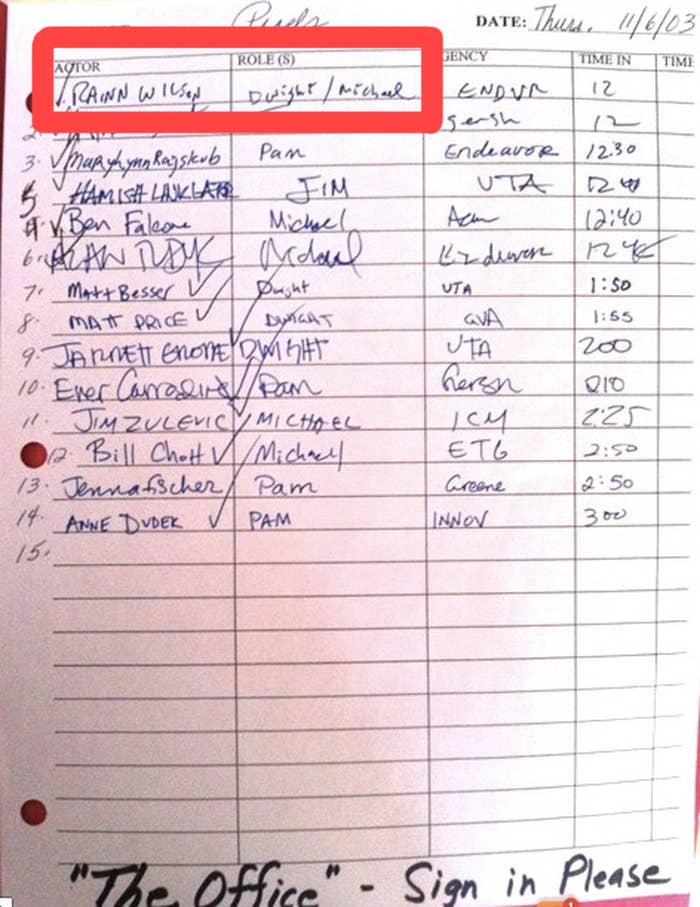 DATE: Thurs. 11/6/03
ACTOR ROLE (S) GENCY TIME IN TIME
1. RAINN WILSON Dwight/Michael ENDVR 12
2. gersh 12
3. MaryLynn Rajskub Pam Endeavor 12:30
5 HAMISH LINKLATER JIM UTA
4. Ben Falcone Michael 12:40
6. ALAN TUDYK Michael Endeavor
7. Matt Besser Dwight UTA 1:50
8. MATT PRICE DWIGHT GVA 1:55
9. JARRETT GRODE DWIGHT UTA 200
10. Ever Carradine Pam Gersh 210
11. JIM ZULEVIC MICHAEL ICM 2:25
12. Bill Chott Michael ETG 2:50
13. Jenna Fischer Pam Greene 2:50
14. ANNE DUDEK PAM INNOV 300
15.
"The Office" - Sign in Please